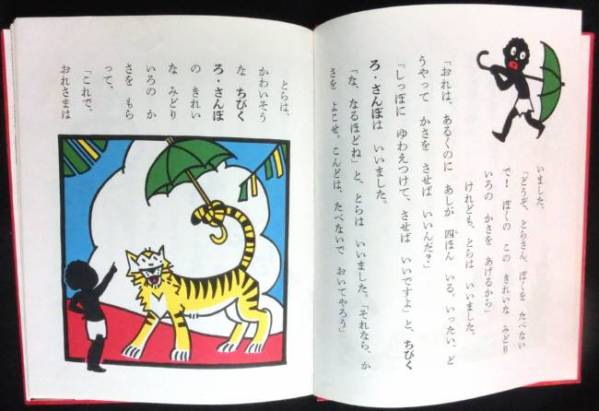 いました。
「どうぞ、とらさん、ぼくを たべない
で！ ぼくの この きれいな みどり
いろの かさを あげるから」
けれども、とらは いいました。
「おれは、あるくのに あしが 四ほん いる。いったい、ど
うやって かさを させば いいんだ？」
「しっぽに ゆわえつけて、させば いいですよ」と、ちびく
ろ・さんぼは いいました。
「な、なるほどね」と、とらは いいました。「それなら、か
さを よこせ。こんどは、たべないで おいてやろう」
とらは、
かわいそう
な ちびく
ろ・さんぼ
の きれい
な みどり
いろの か
さを もら
って、
「これで、
おれさまは